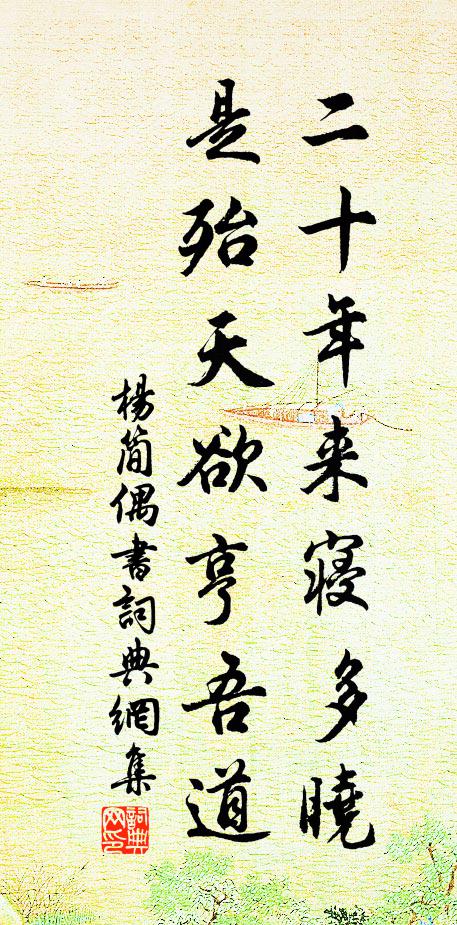 二十年来寝多曉
是殆天欲亨吾道
楊簡偶書詞典網集
詞典
网印